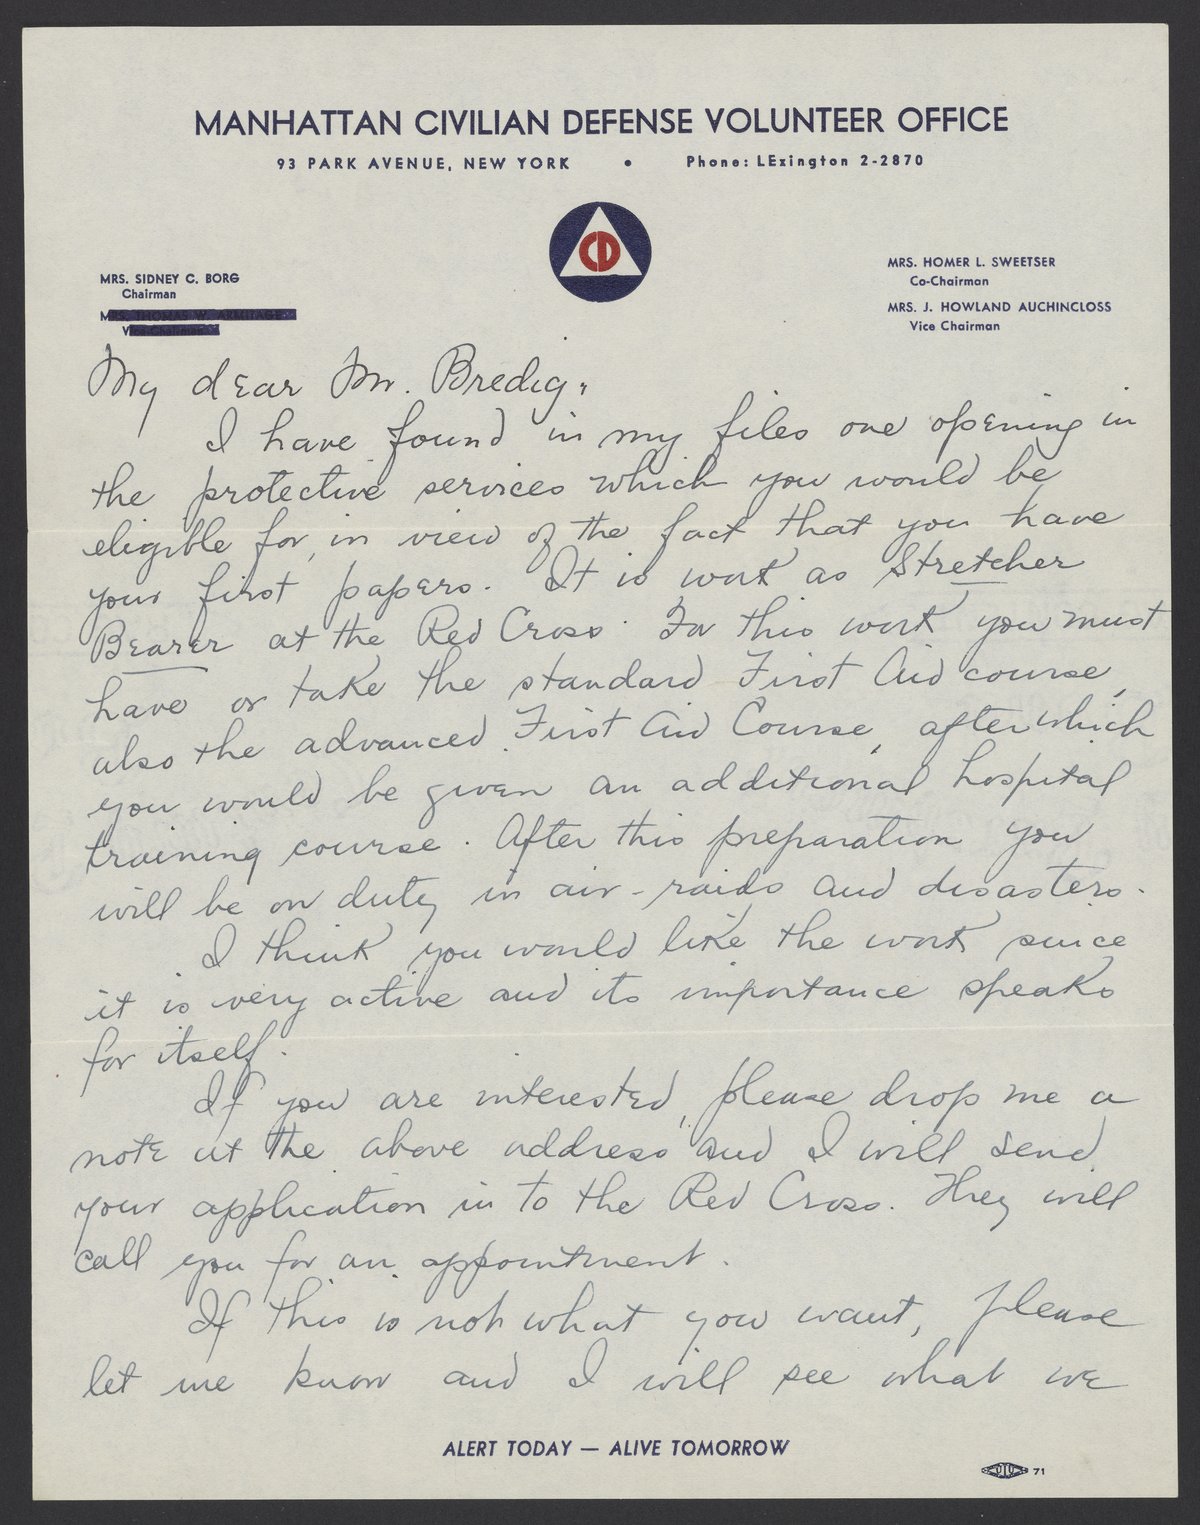 MANHATTAN CIVILIAN DEFENSE VOLUNTEER OFFICE
93 PARK AVENUE, NEW YORK • Phone: LExington 2-2870
CD
MRS. SIDNEY C. BORG
Chairman
MRS. THOMAS W. ARMITAGE
Vice Chairman
MRS. HOMER L. SWEETSER
Co-Chairman
MRS. J. HOWLAND AUCHINCLOSS
Vice Chairman
My dear Mr. Bredig,
I have found in my files one opening in
the protective services which you would be
eligible for, in view of the fact that you have
your first papers. It is work as Stretcher
Bearer at the Red Cross. For this work you must
have or take the standard First Aid course,
also the advanced First Aid Course, after which
you would be given an additional hospital
training course. After this preparation you
will be on duty in air-raids and disasters.
I think you would like the work since
it is very active and its importance speaks
for itself.
If you are interested, please drop me a
note at the above address and I will send
your application in to the Red Cross. They will
call you for an appointment.
If this is not what you want, please
let me know and I will see what we
ALERT TODAY — ALIVE TOMORROW
71